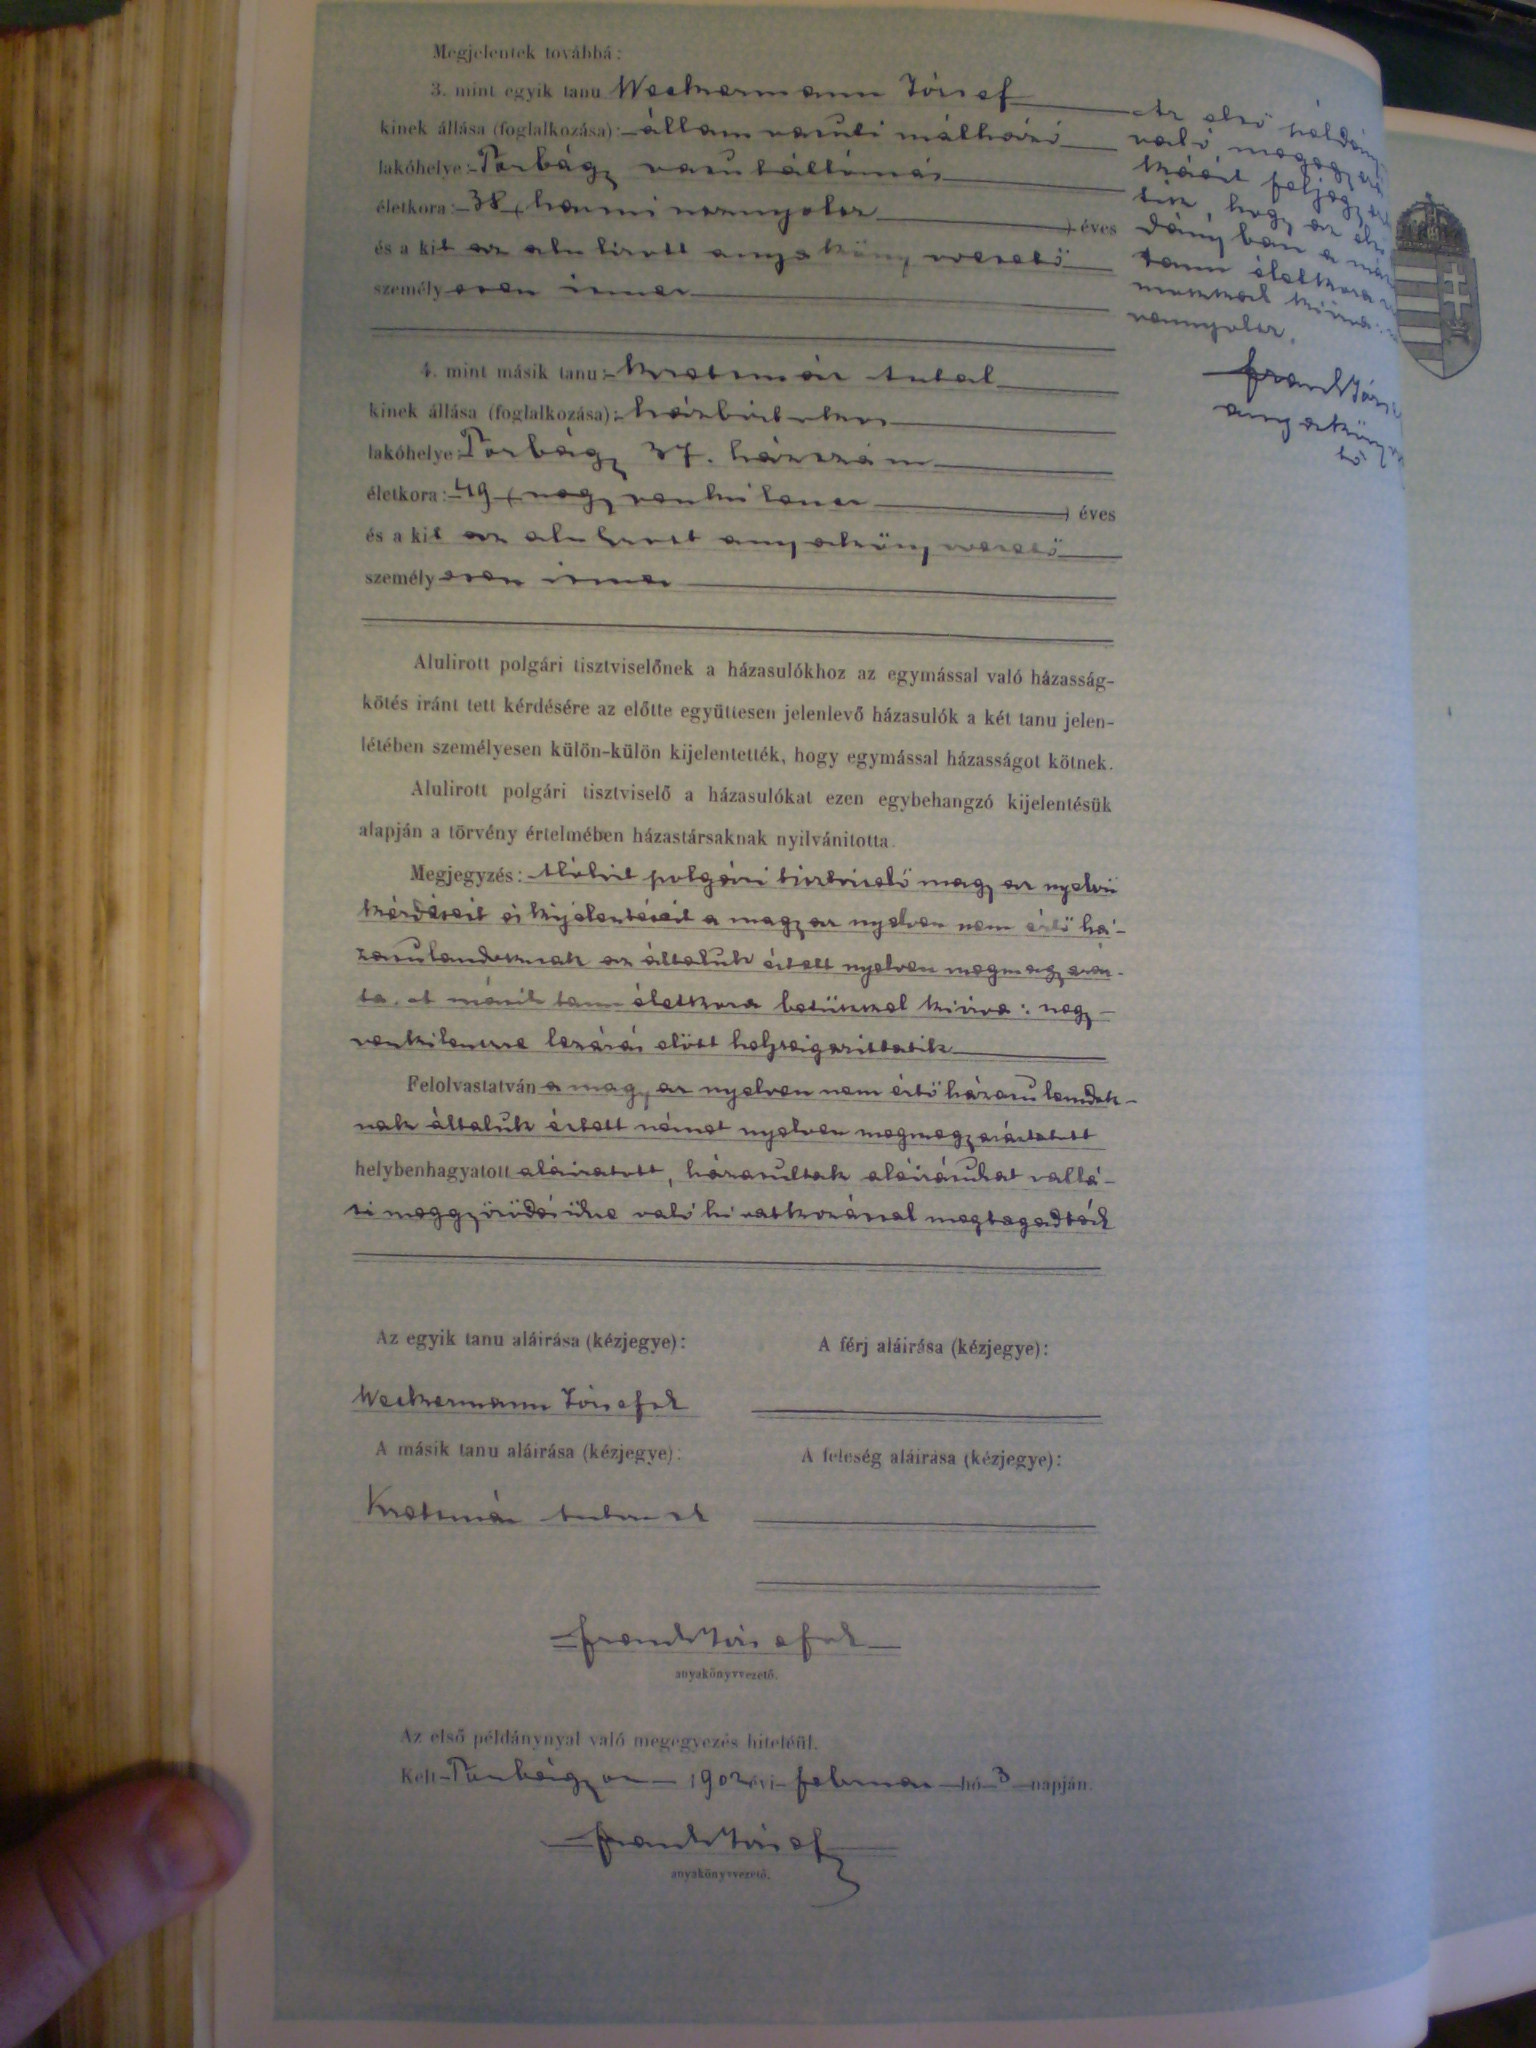 Megjelentek továbbá:
3. mint egyik tanu Weckermann József
kinek állása (foglalkozása): állam vasuti málházó
lakóhelye: Torbágy vasutállomás
életkora: 38 (harmincznyolcz) éves
és a kit az alulirott anyakönyvvezető
személyesen ismer
4. mint másik tanu: Kratsmár Antal
kinek állása (foglalkozása): házbirtokos
lakóhelye: Torbágy 37. házszám
életkora: 49 (negyvenkilencz) éves
és a kit az alulirott anyakönyvvezető
személyesen ismer
Alulirott polgári tisztviselőnek a házasulókhoz az egymással való házasság-
kötés iránt tett kérdésére az előtte együttesen jelenlevő házasulók a két tanu jelen-
létében személyesen külön-külön kijelentették, hogy egymással házasságot kötnek.
Alulirott polgári tisztviselő a házasulókat ezen egybehangzó kijelentésük
alapján a törvény értelmében házastársaknak nyilvánitotta.
Megjegyzés: Alulirt polgári tisztviselő magyar nyelvü
kérdéseit és kijelentéseit a magyar nyelven nem értő há-
zasulandoknak az általuk értett nyelven megmagyaráz-
ta. A másik tanu életkora betükkel kiirva: negy-
venkilenczre lezárás előtt helyreigazittatik
Felolvastatván a magyar nyelven nem értő házasulandok-
nak általuk értett német nyelven megmagyaráztatott
helybenhagyatott aláiratott, házasultak aláirásukat vallá-
si meggyőződésükre való hivatkozással megtagadták
Az első példány
való megegyezés
tisz, hogy az első
dányban a más
tanu életkora
vennyolcz.
Frank József
anyakönyv
tő
Az egyik tanu aláirása (kézjegye):
A férj aláirása (kézjegye):
Weckermann József sk
A másik tanu aláirása (kézjegye):
A feleség aláirása (kézjegye):
Kratsmár Antal sk
Frank József sk
anyakönyvvezető.
Az első példánynyal való megegyezés hiteléül.
Kelt Torbágyon 1902 évi februar hó 3 napján.
Frank József
anyakönyvvezető.